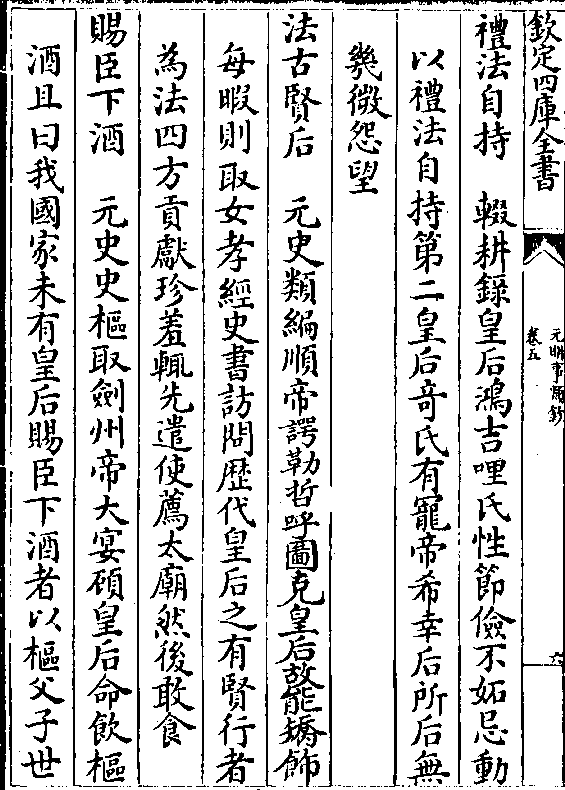 欽定四庫全書
元明事類鈔
卷五
六
禮法自持　輟耕錄皇后鴻吉哩氏性節儉不妬忌動
以禮法自持第二皇后竒氏有寵帝希幸后所后無
幾微怨望
法古賢后　元史類編順帝諤勒哲呼圖克皇后故能矯飾
每暇則取女孝經史書訪問歴代皇后之有賢行者
為法四方貢獻珍羞輒先遣使薦太廟然後敢食
賜臣下酒　元史史樞取劍州帝大宴顧皇后命飲樞
酒且曰我國家未有皇后賜臣下酒者以樞父子世